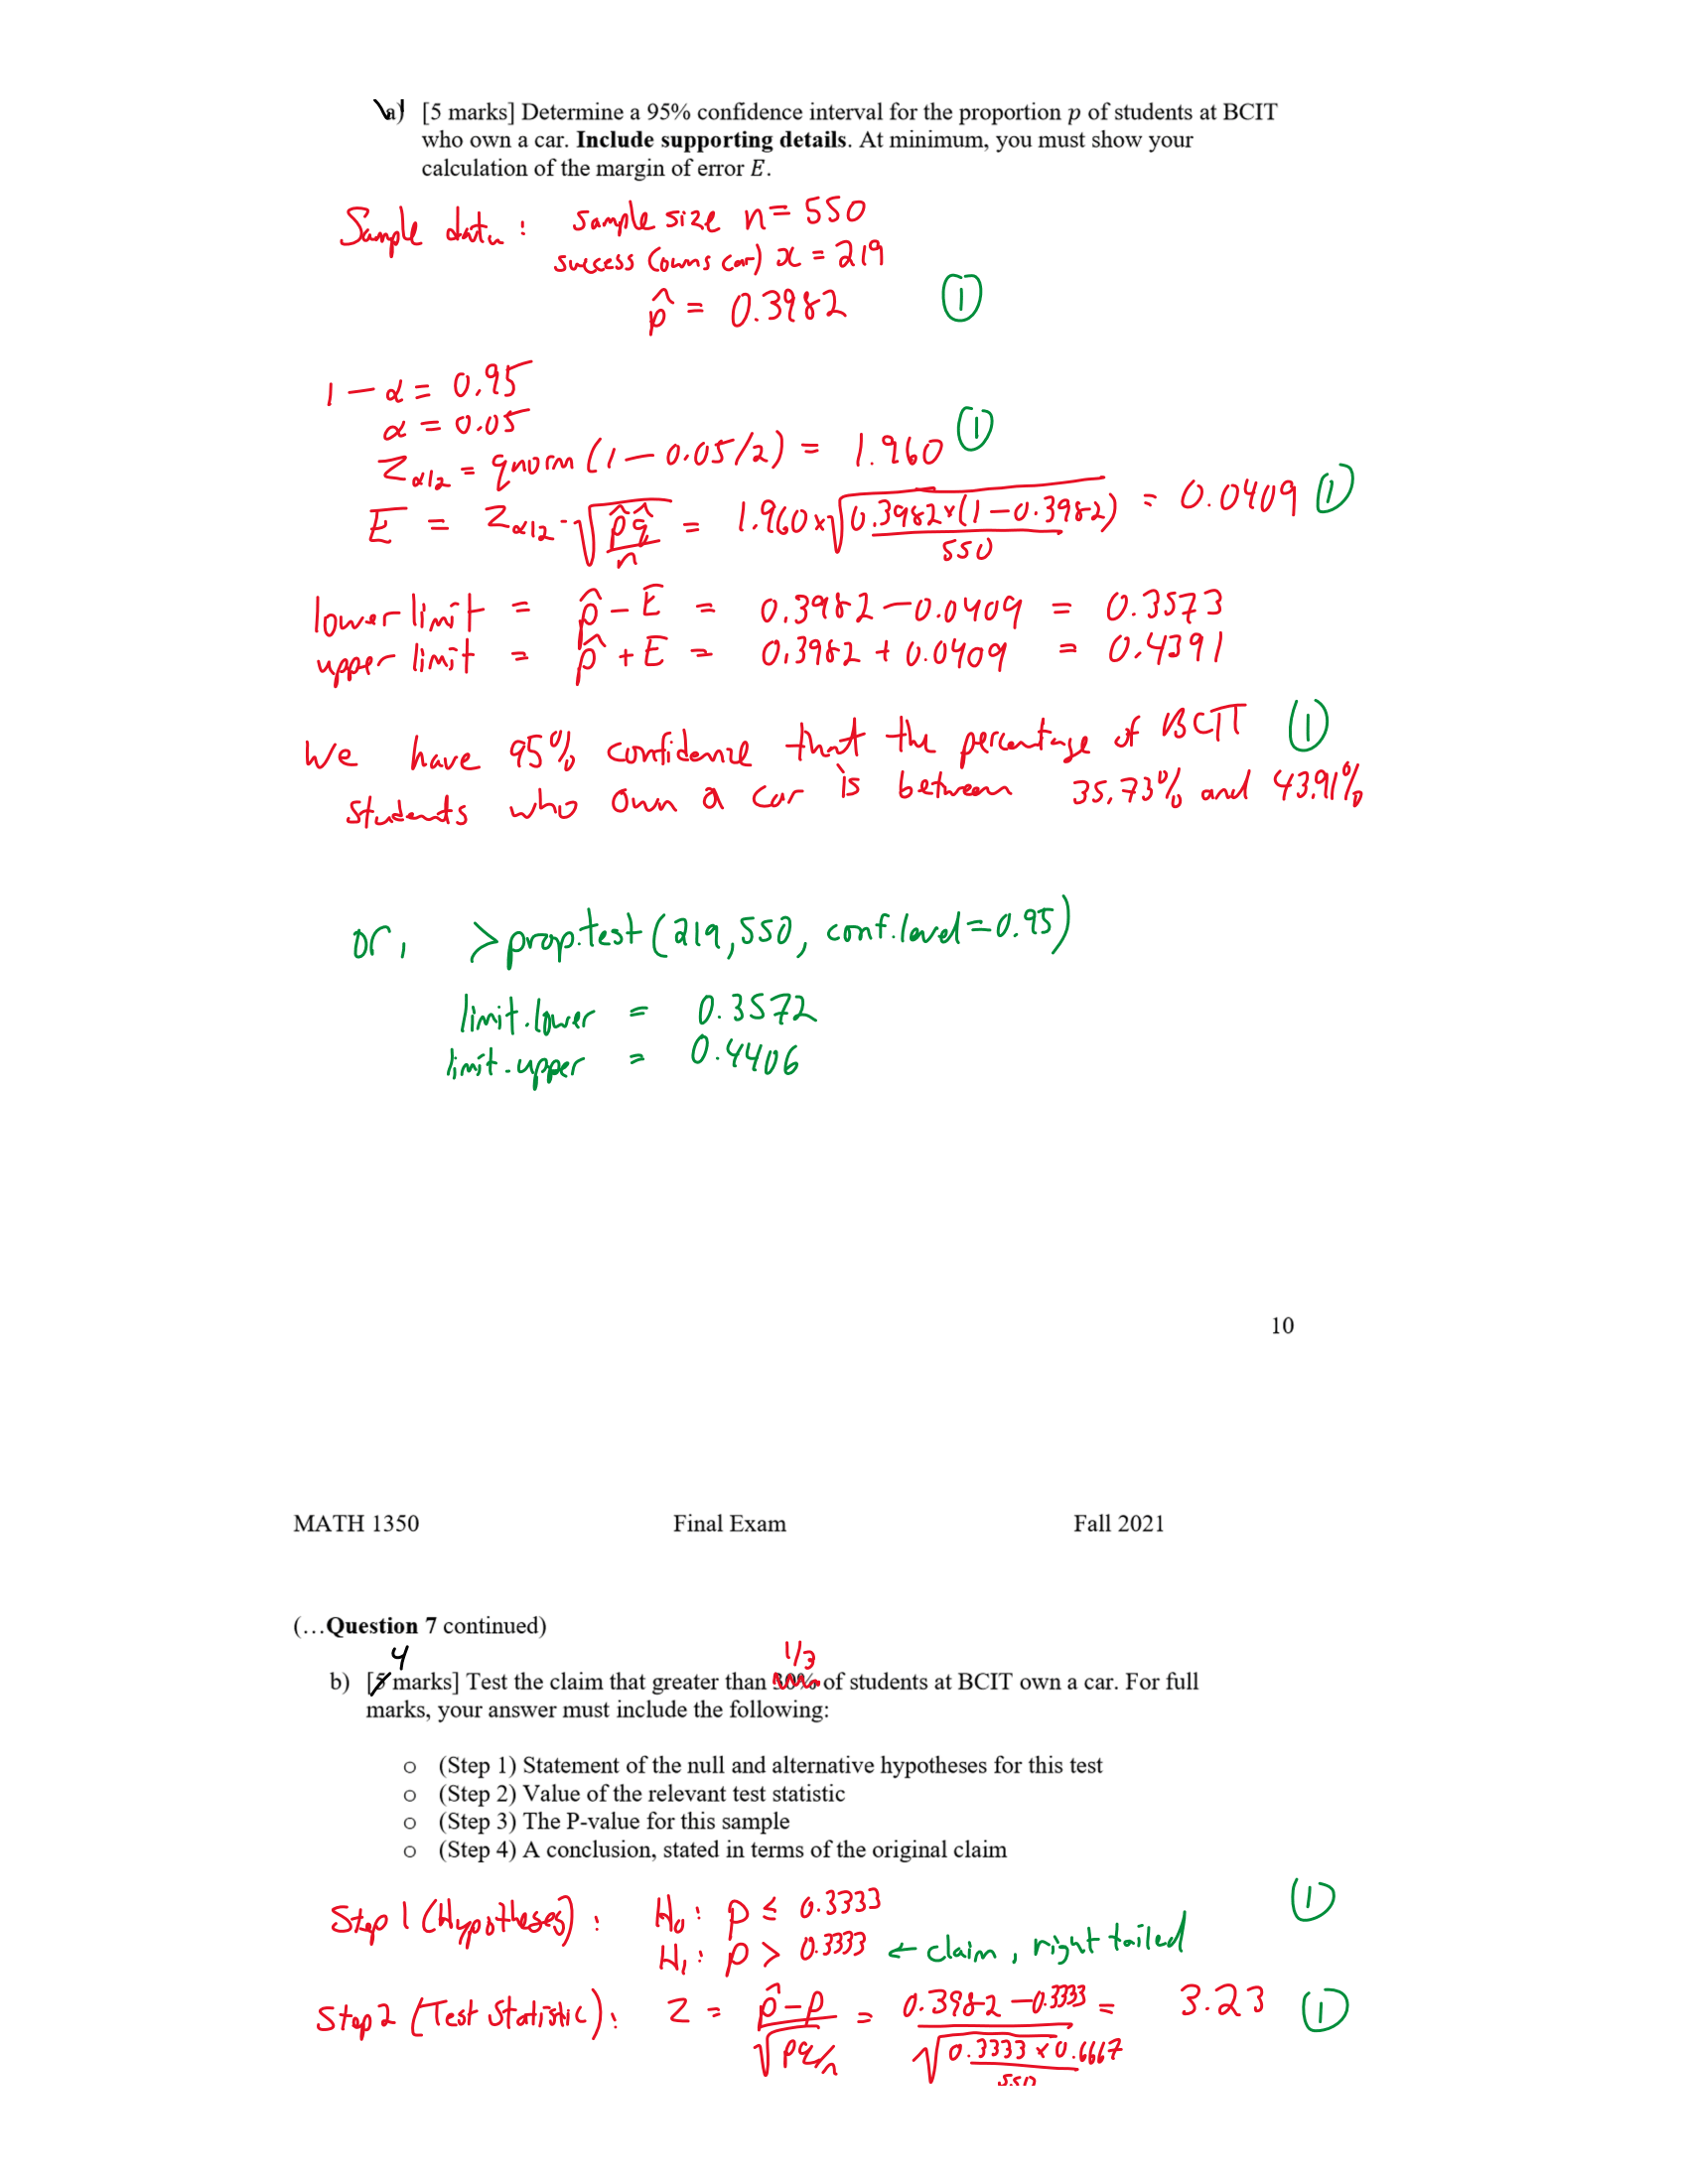 a) [5 marks] Determine a 95% confidence interval for the proportion p of students at BCIT
who own a car. Include supporting details. At minimum, you must show your
calculation of the margin of error E.
Sample data: sample size n = 550
success (owns car) x = 219
p̂ = 0.3982 ①
1 − α = 0.95
α = 0.05
Zα/2 = qnorm (1 − 0.05/2) = 1.960 ①
E = Zα/2 · √(p̂q̂/n) = 1.960 × √(0.3982×(1−0.3982)/550) = 0.0409 ①
lower limit = p̂ − E = 0.3982 − 0.0409 = 0.3573
upper limit = p̂ + E = 0.3982 + 0.0409 = 0.4391
We have 95% confidence that the percentage of BCIT ①
students who own a car is between 35.73% and 43.91%
or, > prop.test (219, 550, conf.level = 0.95)
limit.lower = 0.3572
limit.upper = 0.4406
10
MATH 1350 Final Exam Fall 2021
(…Question 7 continued)
4 1/3
b) [5 marks] Test the claim that greater than 30% of students at BCIT own a car. For full
marks, your answer must include the following:
o (Step 1) Statement of the null and alternative hypotheses for this test
o (Step 2) Value of the relevant test statistic
o (Step 3) The P-value for this sample
o (Step 4) A conclusion, stated in terms of the original claim
Step 1 (Hypotheses): H₀: p ≤ 0.3333 ①
H₁: p > 0.3333 ← claim, right tailed
Step 2 (Test Statistic): Z = (p̂ − p)/√(pq/n) = (0.3982 − 0.3333)/√(0.3333 × 0.6667/550) = 3.23 ①